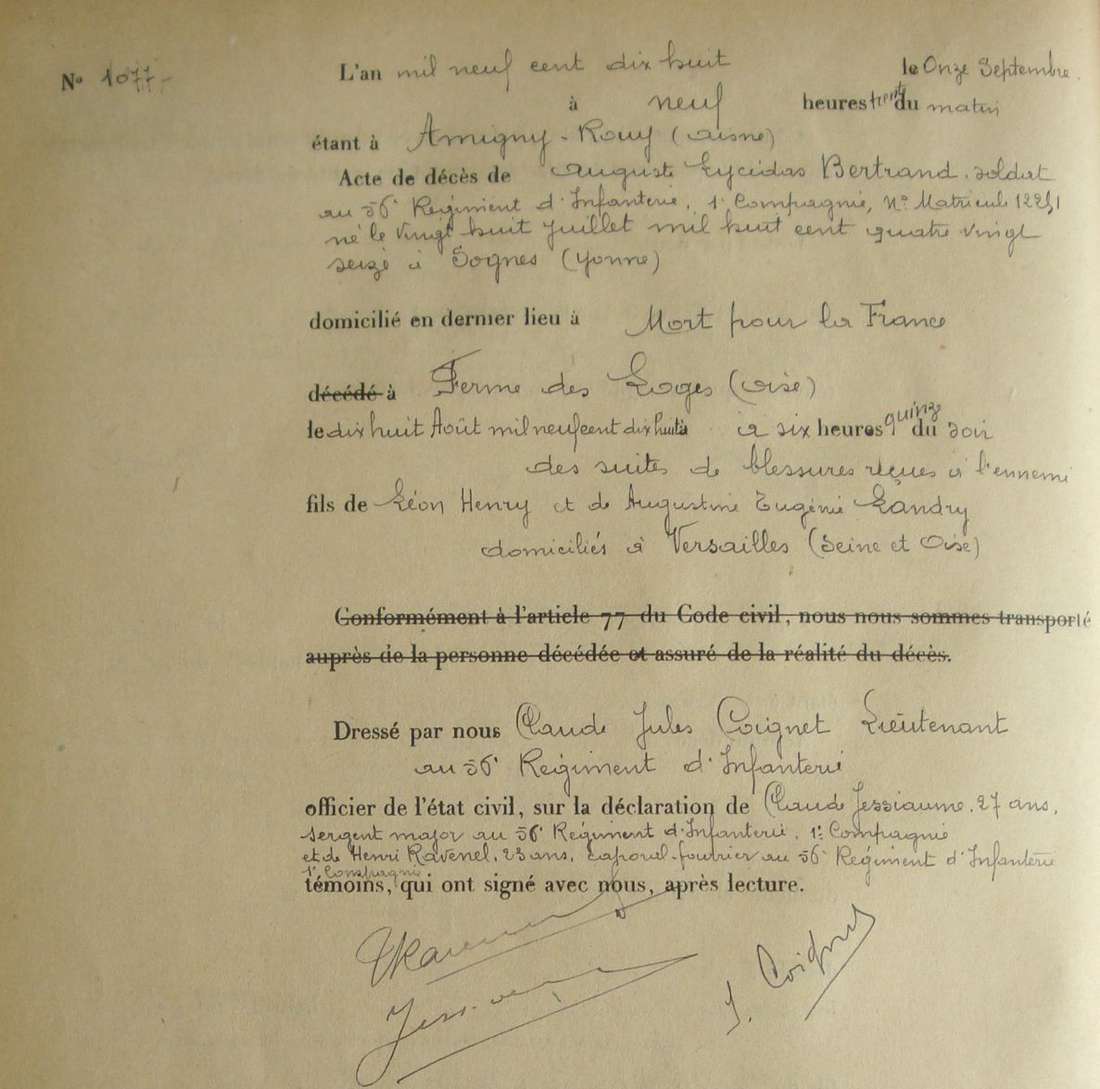 N° 1077-
L'an mil neuf cent dix huit le Onze Septembre
à neuf heures trente du matin
étant à Amigny-Rouy (Aisne)
Acte de décès de Auguste Lycidas Bertrand, soldat
au 56e Régiment d'Infanterie, 1e Compagnie, N° Matricule 12251
né le vingt huit Juillet mil huit cent quatre vingt
seize à Sognes (Yonne)
domicilié en dernier lieu à Mort pour la France
décédé à Ferme des Loges (Oise)
le dix huit Août mil neuf cent dix huit à à six heures quinze du soir
des suites de blessures reçues à l'ennemi
fils de Léon Henry et de Augustine Eugénie Landry
domiciliés à Versailles (Seine et Oise)
Conformément à l'article 77 du Code civil, nous nous sommes transporté
auprès de la personne décédée et assuré de la réalité du décès.
Dressé par nous Claude Jules Coignet Lieutenant
au 56e Régiment d'Infanterie
officier de l'état civil, sur la déclaration de Claude Jessiaume, 27 ans,
sergent major au 56e Régiment d'Infanterie, 1e Compagnie
et de Henri Ravenel, 23 ans, caporal-fourrier au 56e Régiment d'Infanterie
1e Compagnie
témoins, qui ont signé avec nous, après lecture.
J. Coignet